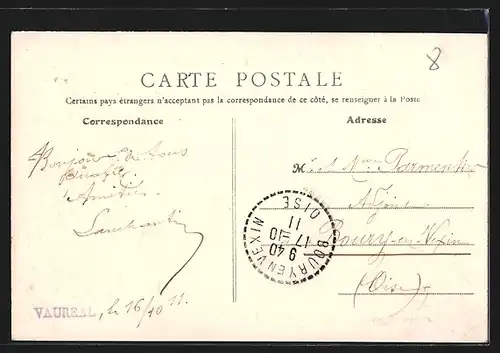 8
CARTE POSTALE
Certains pays étrangers n'acceptant pas la correspondance de ce côté, se renseigner à la Poste
Correspondance
Adresse
Bonjour à tous
M. et Mme Parmentier
BOURY EN VEXIN
9 40
17 - 10
11
OISE
Boury-en-Vexin
(Oise)
VAUREAL, le 16/10 11.